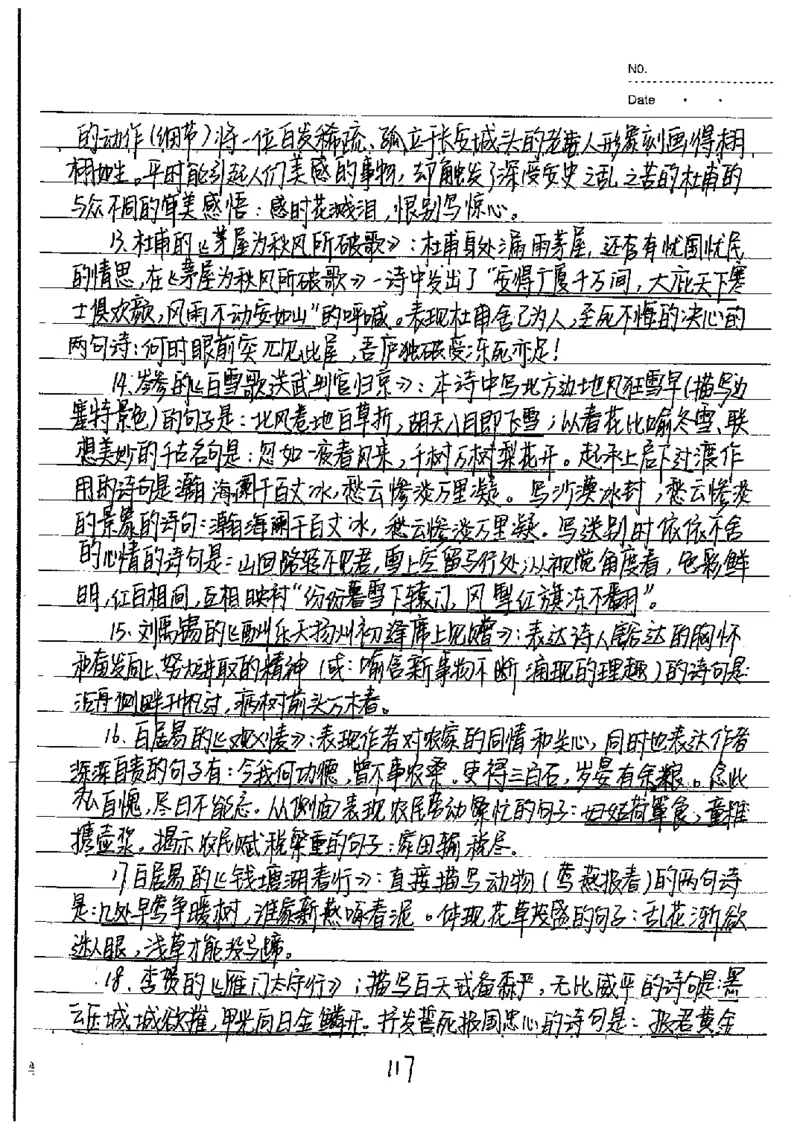 NO.
Date
的动作(细节)将一位白发稀疏、孤立于长安城头的老患人形象刻画得栩
栩如生。平时能引起人们美感的事物,却触发了深受安史之乱之苦的杜甫的
与众不同的审美感悟:感时花溅泪,恨别鸟惊心。
13.杜甫的《茅屋为秋风所破歌》:杜甫身处漏雨茅屋,还含有忧国忧民
的情思,在《茅屋为秋风所破歌》一诗中发出了"安得广厦千万间,大庇天下寒
士俱欢颜,风雨不动安如山"的呼喊。表现杜甫舍己为人,至死不悔的决心的
两句诗:何时眼前突兀见此屋,吾庐独破受冻死亦足!
14.岑参的《白雪歌送武判官归京》:本诗中写北方边地风狂雪早(描写边
塞特景色)的句子是:北风卷地百草折,胡天八月即飞雪;以春花比喻冬雪、联
想美妙的千古名句是:忽如一夜春风来,千树万树梨花开。起承上启下过渡作
用的诗句是瀚海阑干百丈冰,愁云惨淡万里凝。写沙漠冰封,愁云惨淡
的景象的诗句:瀚海阑干百丈冰,愁云惨淡万里凝。写送别时依依不舍
的心情的诗句是:山回路转不见君,雪上空留马行处;从视觉角度看,色彩鲜
明,红白相间,互相映衬"纷纷暮雪下辕门,风掣红旗冻不翻"。
15.刘禹锡的《酬州乐天扬州初逢席上见赠》:表达诗人豁达的胸怀
和奋发向上、努力进取的精神(或:喻含新事物不断涌现的理趣)的诗句是:
沉舟侧畔千帆过,病树前头万木春。
16.白居易的《观刈麦》:表现作者对农家的同情和关心,同时也表达作者
深深自责的句子有:今我何功德,曾不事农桑。吏得三百石,岁晏有余粮。念此
私自愧,尽日不能忘。从侧面表现农民劳动繁忙的句子:妇姑荷箪食,童稚
携壶浆。揭示农民赋税繁重的句子:家田输税尽。
17白居易的《钱塘湖春行》:直接描写动物(莺燕报春)的两句诗
是:几处早莺争暖树,谁家新燕啄春泥。体现花草茂盛的句子:乱花渐欲
迷人眼,浅草才能没马蹄。
18.李贺的《雁门太守行》:描写白天戒备森严,无比威严的诗句是:黑
云压城城欲摧,甲光向日金鳞开。抒发誓死报国忠心的诗句是:报君黄金
117